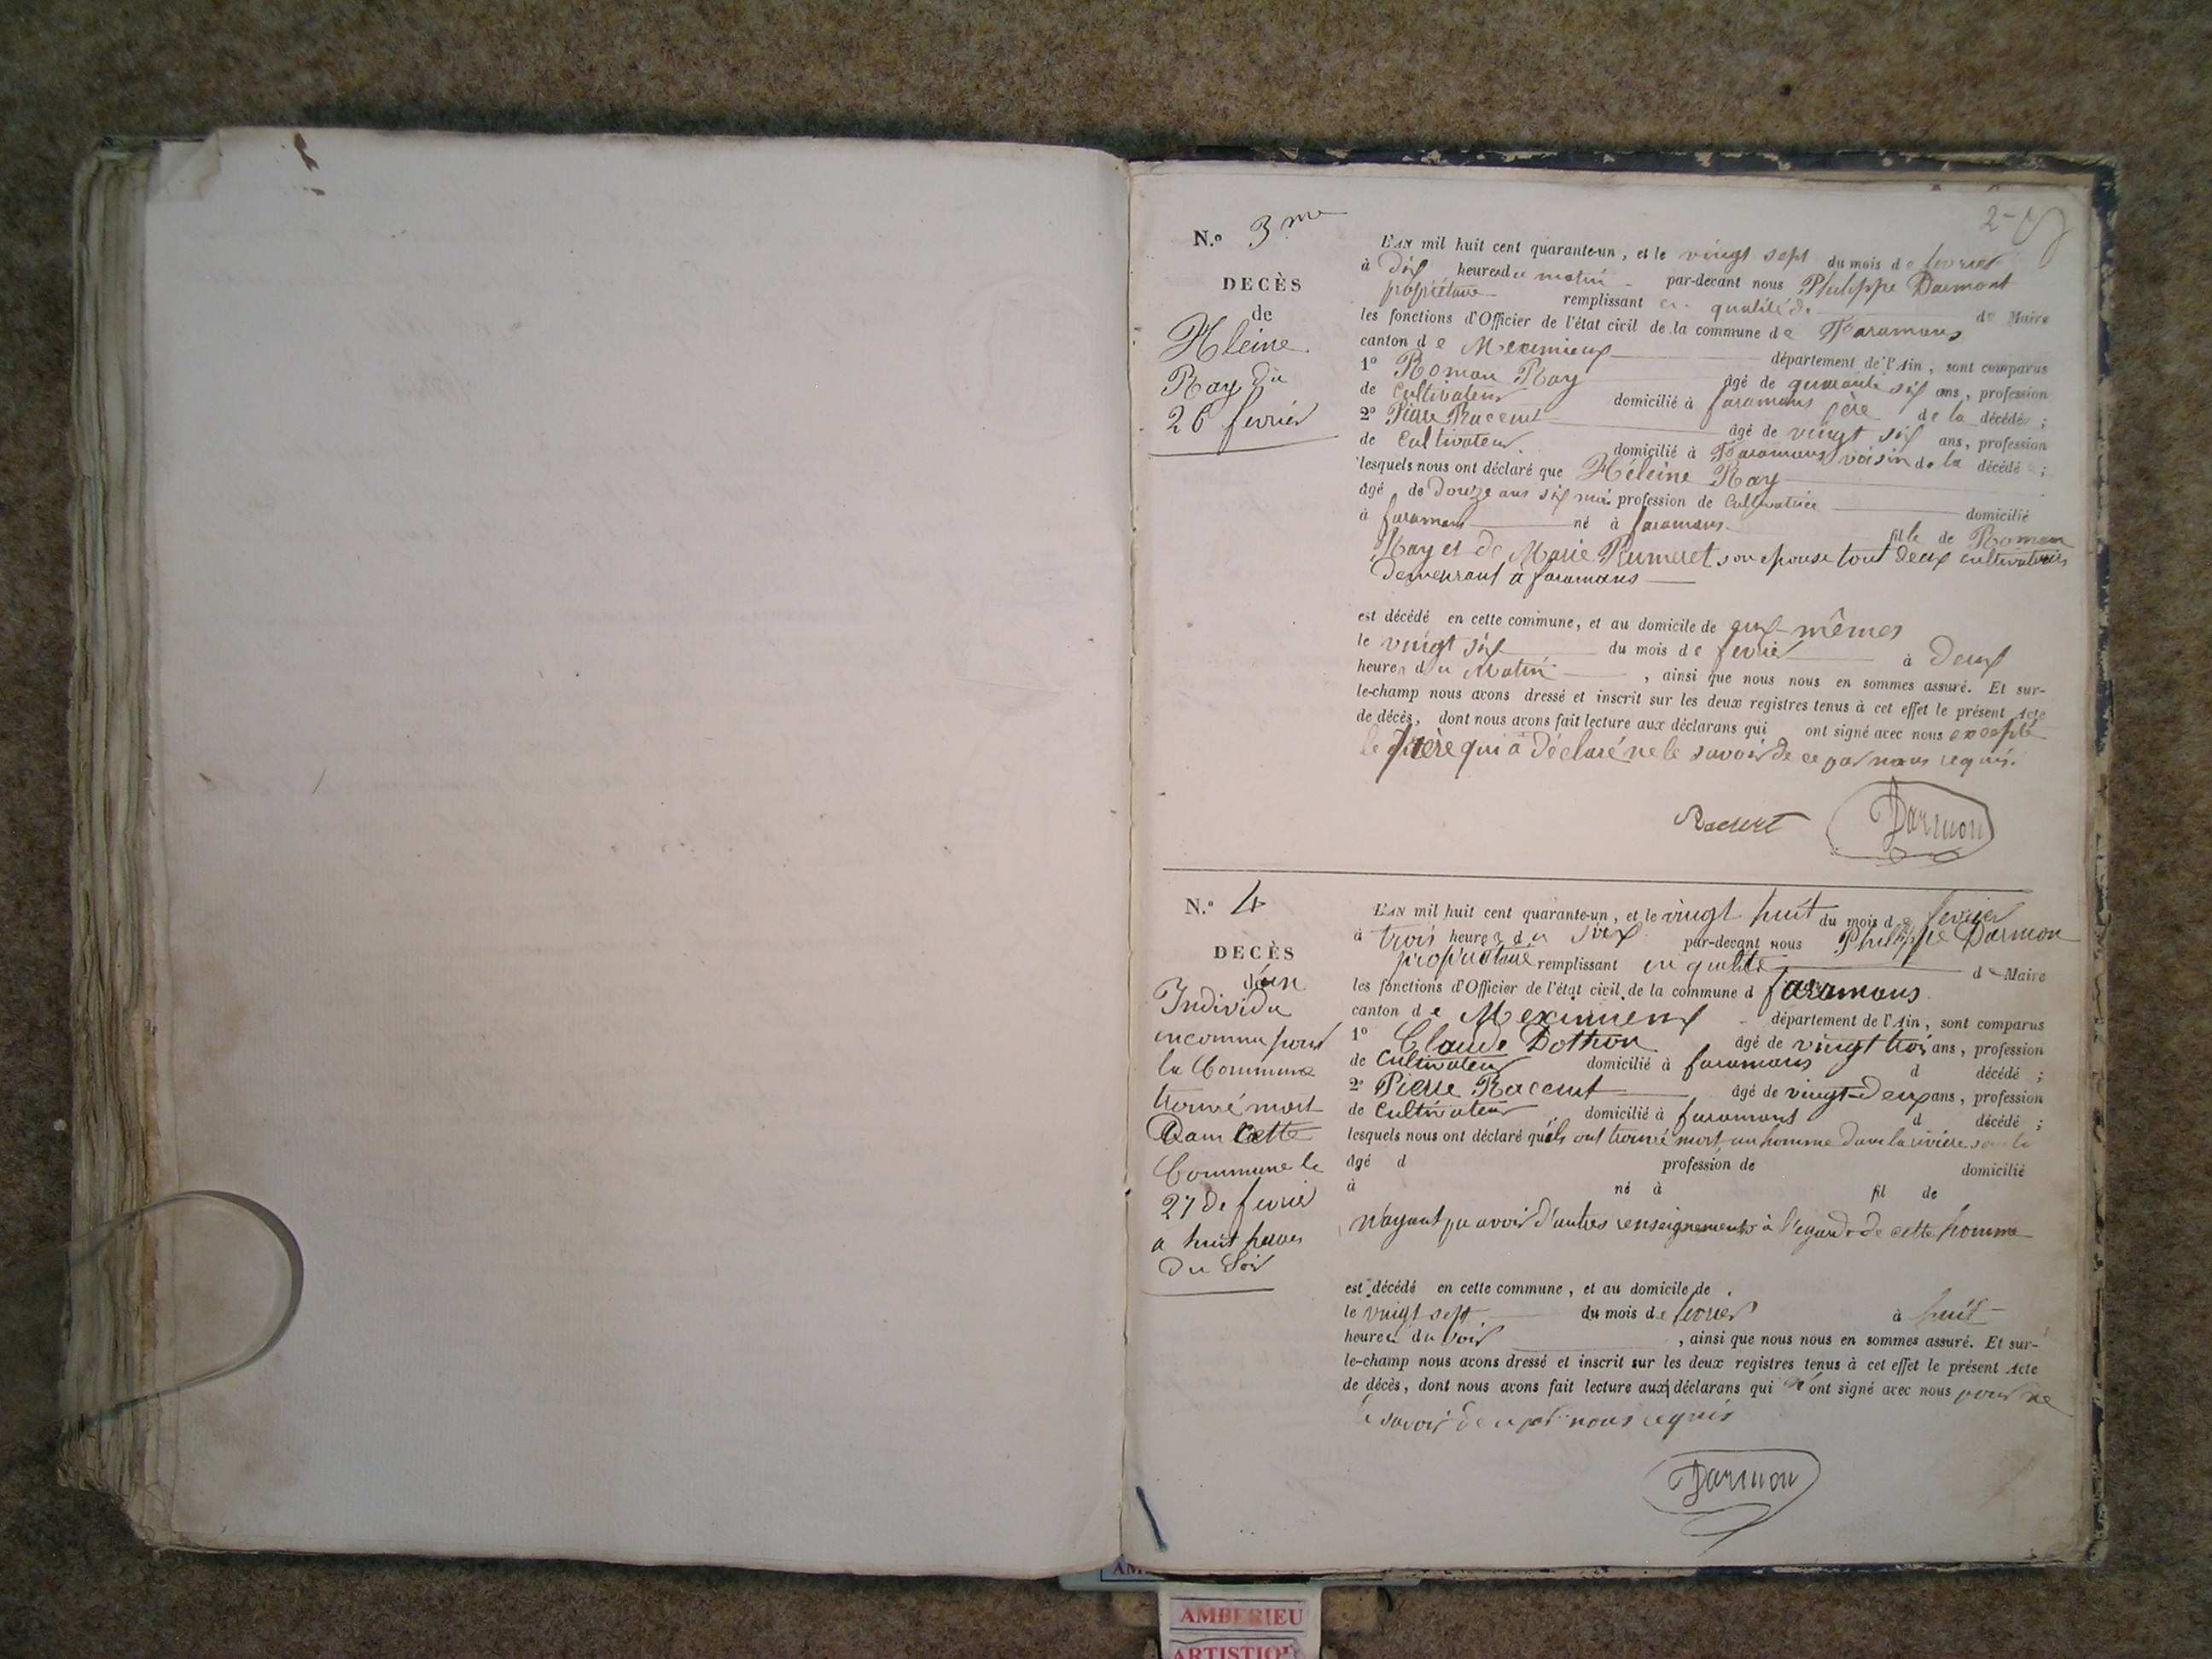 N.° 3me
DECÈS
de
Hleine
Ray du
26 fevrier
L'AN mil huit cent quarante-un, et le vingt sept du mois de fevrier
à Dix heures du matin par-devant nous Philippe Darmont
propriétaire remplissant en qualité de de Maire
les fonctions d'Officier de l'état civil de la commune de Faramans
canton de Meximieux département de l'Ain, sont comparus
1° Roman Ray âgé de quarante six ans, profession
de Cultivateur domicilié à faramans père de la décédée ;
2° Piere Raccurt âgé de vingt six ans, profession
de Cultivateur domicilié à Faramans voisin de la décédée ;
lesquels nous ont déclaré que Héleine Ray
âgé de Douze ans six mois profession de Cultivatrice domicilié
à faramans né à faramans fille de Roman
Ray et de Marie Rumeret son epouse tout deux cultivateurs
demeurant a faramans
est décédé en cette commune, et au domicile de eux-mêmes
le vingt six du mois de fevrier à Deux
heures du Matin, ainsi que nous nous en sommes assuré. Et sur-
le-champ nous avons dressé et inscrit sur les deux registres tenus à cet effet le présent Acte
de décès, dont nous avons fait lecture aux déclarans qui ont signé avec nous excepté
le père qui a déclaré ne le savoir de ce par nous requis.
Raccurt Darmon
N.° 4
DECÈS
d'un
Individu
inconnu pour
la Commune
trouvé mort
Dans Cette
Commune le
27 de fevrier
a huit heures
Du Soir
L'AN mil huit cent quarante-un, et le vingt huit du mois de fevrier
à trois heures du soir par-devant nous Philippe Darmon
propriétaire remplissant en qualité de Maire
les fonctions d'Officier de l'état civil de la commune d faramans
canton de Meximieux département de l'Ain, sont comparus
1° Claude Dothion âgé de vingt trois ans, profession
de Cultivateur domicilié à faramans d décédé ;
2° Pierre Raccurt âgé de vingt-Deux ans, profession
de Cultivateur domicilié à faramans d décédé ;
lesquels nous ont déclaré qu'ils ont trouvé mort un homme dans la rivière
âgé d profession de domicilié
à né à fil de
N'ayant pu avoir d'autres renseignements à l'egard de cette homme
est décédé en cette commune, et au domicile de
le vingt sept du mois de fevrier à huit
heures du soir, ainsi que nous nous en sommes assuré. Et sur-
le-champ nous avons dressé et inscrit sur les deux registres tenus à cet effet le présent Acte
de décès, dont nous avons fait lecture aux déclarans qui n'ont signé avec nous pour ne
le savoir de ce par nous requis
Darmon
AMBERIEU